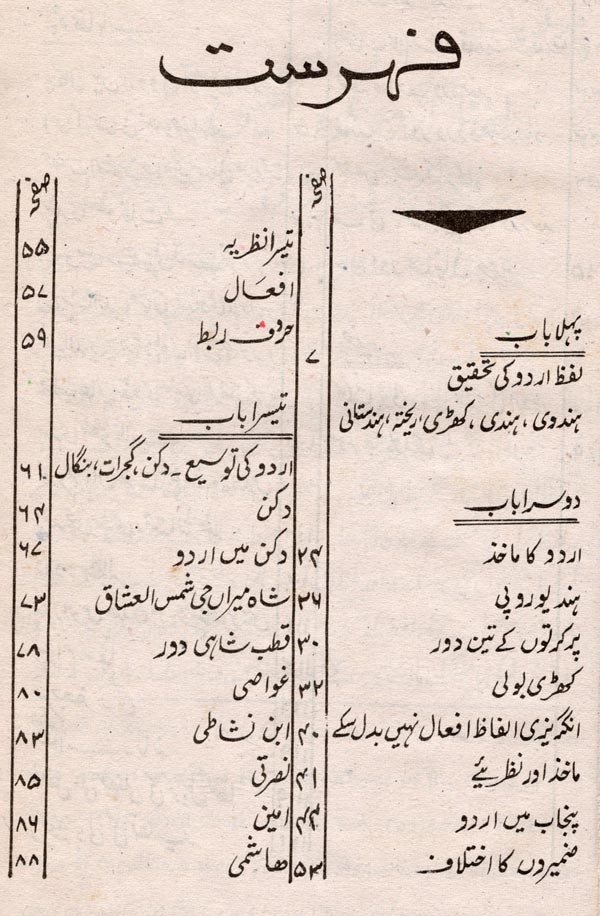 فہرست
صفحہ
پہلا باب
۷
لفظ اردو کی تحقیق
ہندوی، ہندی، کھڑی، ریختہ، ہندستانی
دوسرا باب
اردو کا ماخذ ۲۴
ہند یوروپی ۲۶
پرکرتوں کے تین دور ۳۰
کھڑی بولی ۳۲
انگریزی الفاظ افعال نہیں بدل سکے ۴۰
ماخذ اور نظریئے ۴۱
پنجاب میں اردو ۴۴
ضمیروں کا اختلاف ۵۳
صفحہ
تیسرا نظریہ ۵۵
افعال ۵۷
حروف ربط ۵۹
تیسرا باب
اردو کی توسیع ۔ دکن، گجرات، بنگال ۶۱
دکن ۶۴
دکن میں اردو ۶۷
شاہ میراں جی شمس العشاق ۷۳
قطب شاہی دور ۷۸
غواصی ۸۰
ابن نشاطی ۸۳
نصرتی ۸۵
امین ۸۶
ھاشمی ۸۸